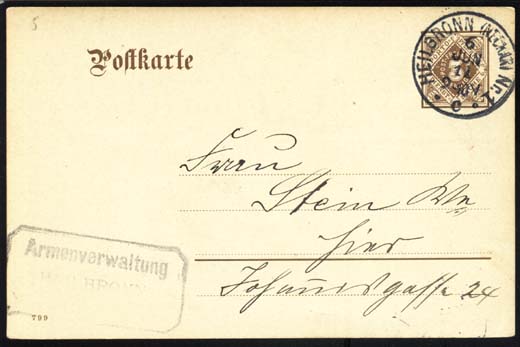 5
Postkarte
HEILBRONN (NECKAR) Nr. 1
6
JUN
11
C
Frau
Stein We
hier
Johannisgasse 24
Armenverwaltung
HEILBRONN
799